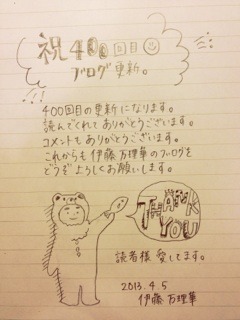 祝400回目
ブログ更新。
400回目の更新になります。
読んでくれてありがとうございます。
コメントもありがとうございます。
これからも伊藤万理華のブログを
どうぞよろしくお願いします。
THANK
YOU
読者様 愛してます。
2013.4.5
伊藤 万理華